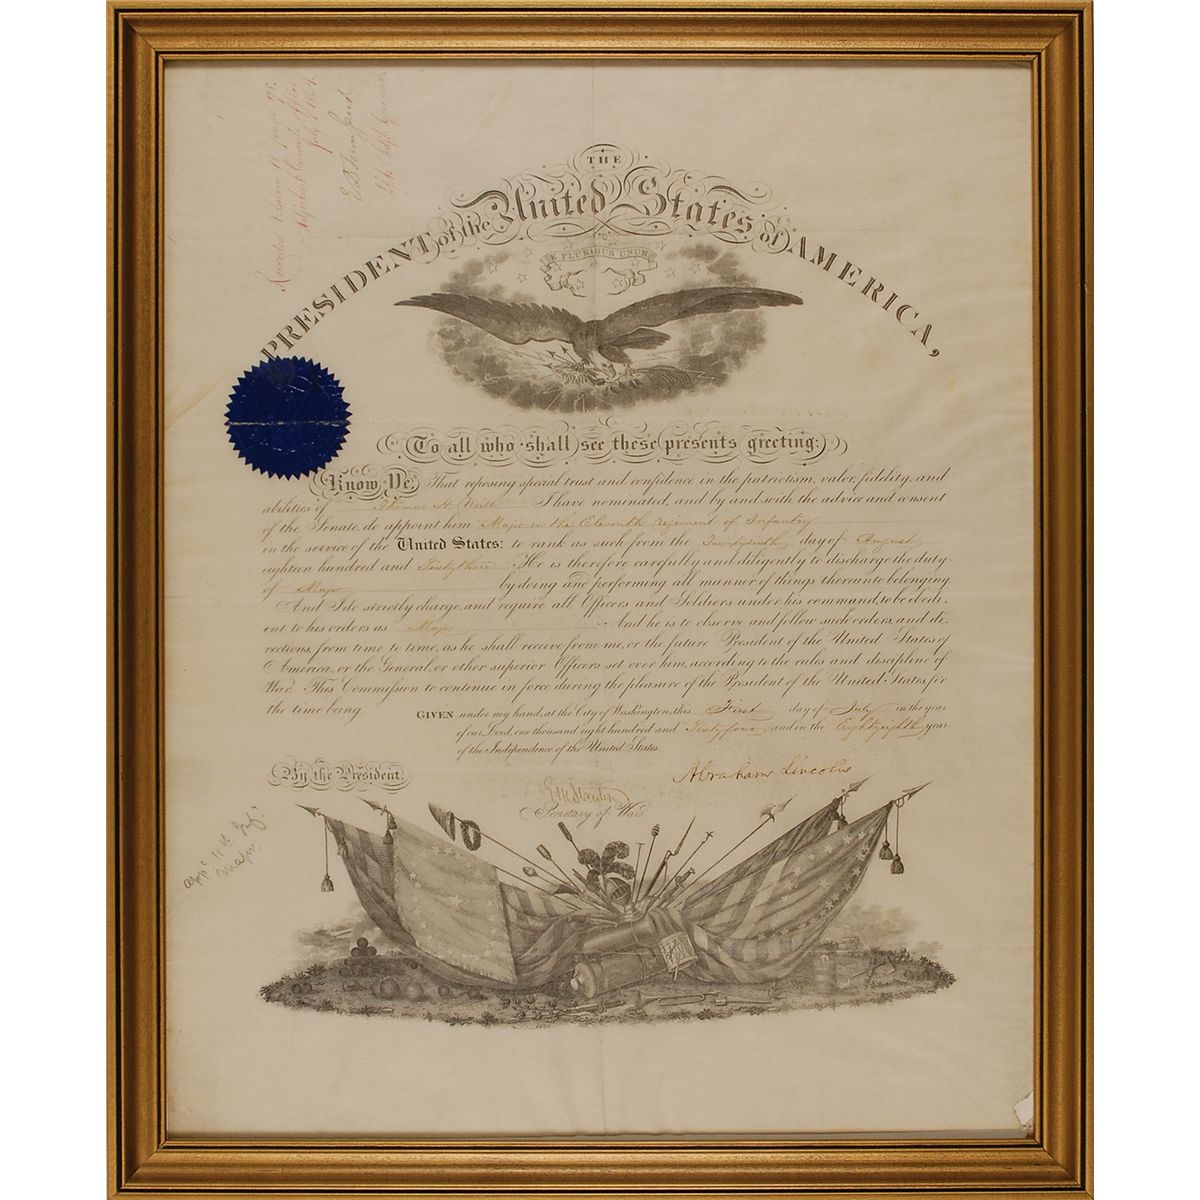 Recorded
July 1864
E D Townsend
THE
PRESIDENT of the United States of AMERICA,
E PLURIBUS UNUM
To all who shall see these presents greeting:
Know Ye, That reposing special trust and confidence in the patriotism, valor, fidelity, and
abilities of Thomas H. Neill I have nominated, and by and with the advice and consent
of the Senate, do appoint him Major in the Eleventh regiment of Infantry
in the service of the United States: to rank as such from the Twentysixth day of August
eighteen hundred and Sixtythree He is therefore carefully and diligently to discharge the duty
of Major by doing and performing all manner of things thereunto belonging
And I do strictly charge, and require all Officers and Soldiers under his command, to be obedi-
ent to his orders as Major And he is to observe and follow such orders, and di-
rections, from time to time, as he shall receive from me, or the future President of the United States of
America, or the General, or other superior Officers set over him, according to the rules and discipline of
War. This Commission to continue in force during the pleasure of the President of the United States, for
the time being.
GIVEN under my hand, at the City of Washington, this First day of July in the year
of our Lord, one thousand eight hundred and Sixtyfour and in the Eightyeighth year
of the Independence of the United States.
By the President,
Abraham Lincoln
Edwin M Stanton
Secretary of War.
11th Inf.
Major.